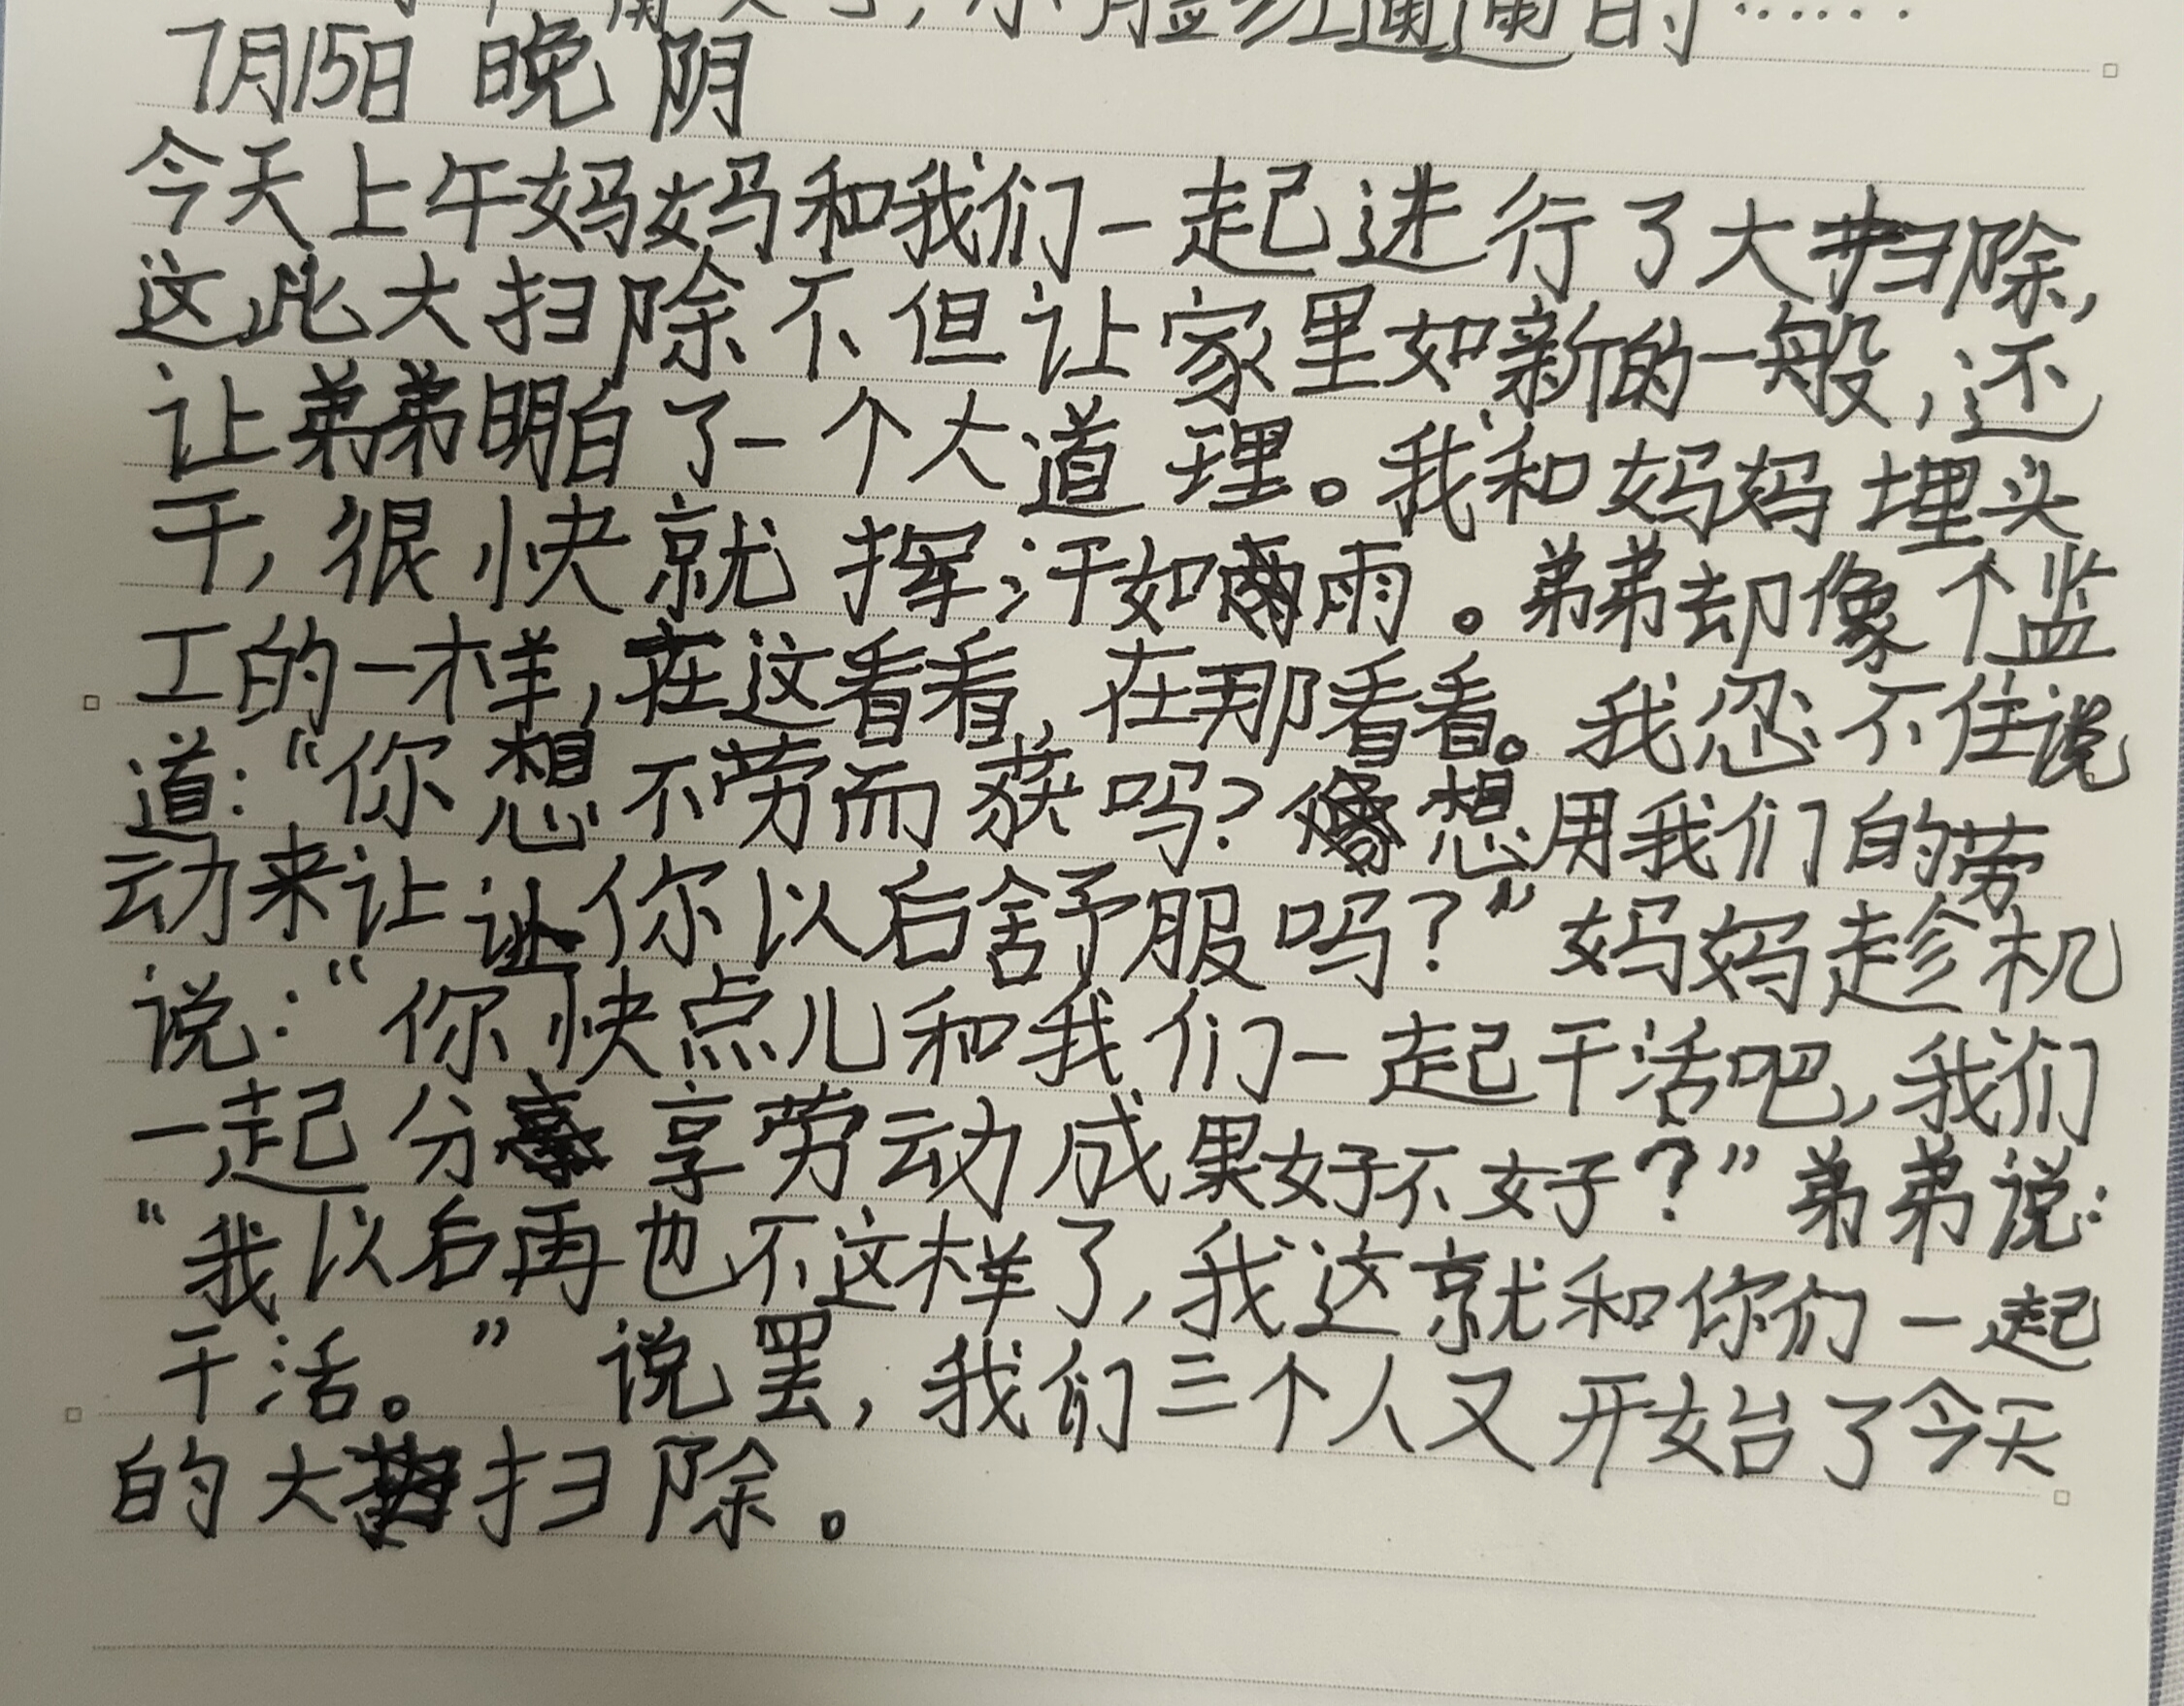 小脸红通通的……
7月15日 晚 阴
今天上午妈妈和我们一起进行了大扫除,
这此大扫除不但让家里如新的一般,还
让弟弟明白了一个大道理。我和妈妈埋头
干,很快就挥汗如雨。弟弟却像个监
工的一样,在这看看,在那看看。我忍不住说
道:“你想不劳而获吗?想用我们的劳
动来让让你以后舒服吗?”妈妈趁机
说:“你快点儿和我们一起干活吧,我们
一起分享劳动成果好不好?”弟弟说:
“我以后再也不这样了,我这就和你们一起
干活。”说罢,我们三个人又开始了今天
的大扫除。